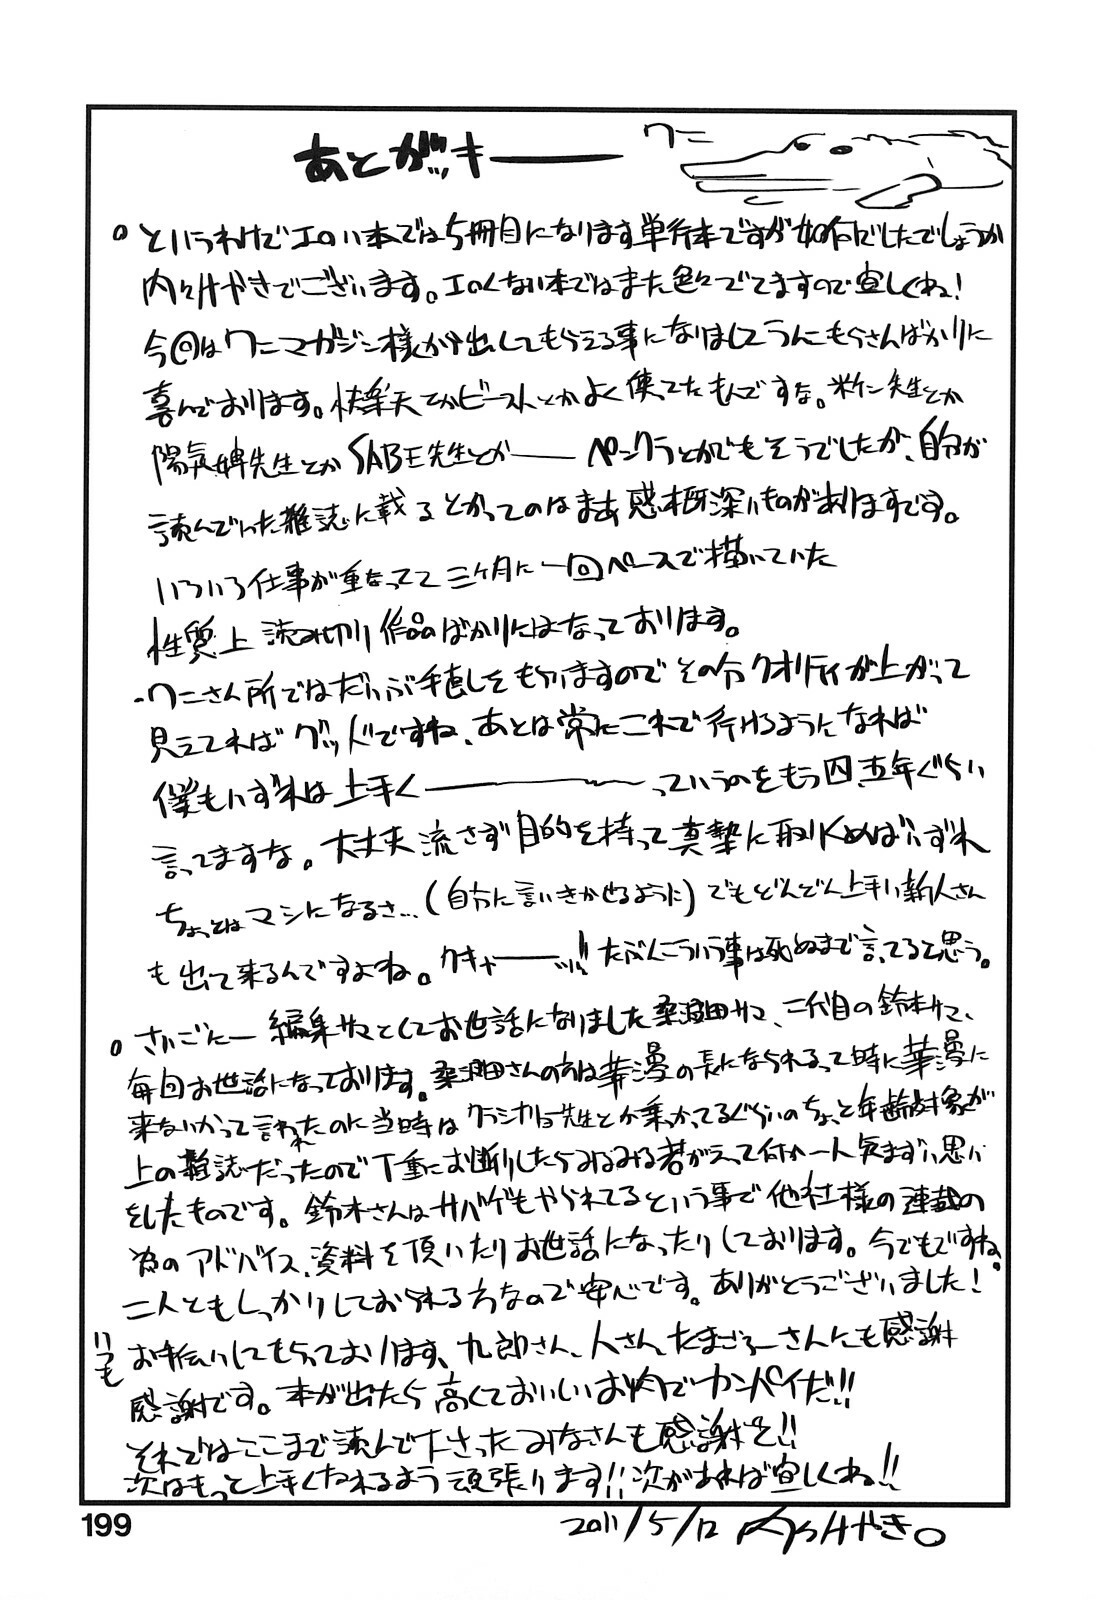 あとがッキーーー
ワニ
。というわけでエロい本では5冊目になります単行本ですが如何でしたでしょうか
内々けやきでございます。エロくない本ではまた色々でてますので宜しくね!
今回はワニマガジン様から出してもらえる事になりましてうんこもらさんばかりに
喜んでおります。快楽天てかビーストとかよく使ってたもんですな。米仁先生とか
陽気婢先生とかSABE先生とかーー ペンクラとかでもそうでしたが、自分が
読んでいた雑誌に載るとかってのはまあ感概深いものがありますです。
いろいろ仕事が重なってて三ヶ月に一回ペースで描いていた
性質上 読み切り作品ばかりにはなっております。
・ワニさん所ではだいぶ手直しをもらいますのでその分クオリティが上がって
見えてればグッドですね、あとは常にこれで行けるようになれば
僕もいずれは上手くーーーーっていうのをもう四、五年ぐらい
言ってますな。大丈夫 流さず目的を持って真摯に取り入めばいずれ
ちょっとはマシになるさ…(自分に言いきかせるように)でもどんどん上手い新人さん
も出て来るんですよね。クキャーーーッ!! たぶんこういう事は死ぬまで言ってると思う。
。さいごにー 編集サマとしてお世話になりました桑沼田サマ、二代目の鈴木サマ、
毎回お世話になっております。桑沼田さんの方は華漫の長になられるって時に華漫に
来ないかって言われたのに当時はクラシカリョ先生とか乗っかってるぐらいのちょっと年齢対象が
上の雑誌だったので丁重にお断りしたらみるみる若がえって何か一人気まずい思い
をしたものです。鈴木さんはサバゲもやられてるという事で他社様の連載の
為のアドバイス、資料を頂いたりお世話になったりしております。今でもですね。
二人ともしっかりしておられる方なので安心です。ありがとうございました!
いつも
お手伝いしてもらっております、九郎さん、人さん、たまごろーさんにも感謝
感謝です。本が出たら高くておいしいお肉でカンパイだ!!
それではここまで読んで下さったみなさんも感謝を!!
次はもっと上手くなれるよう頑張ります!!次があれば宜しくね!!
199
2011/5/12 内々けやき。